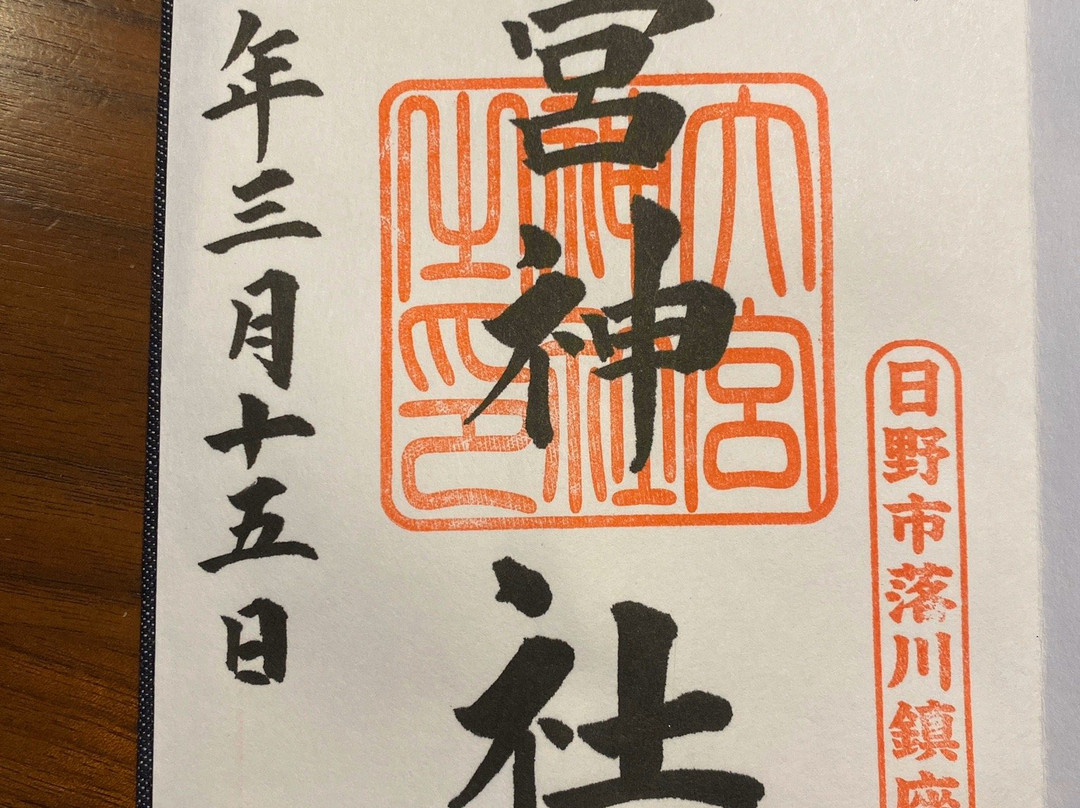 日野市落川鎮座
宮神社
大宮
神社
之印
年三月十五日